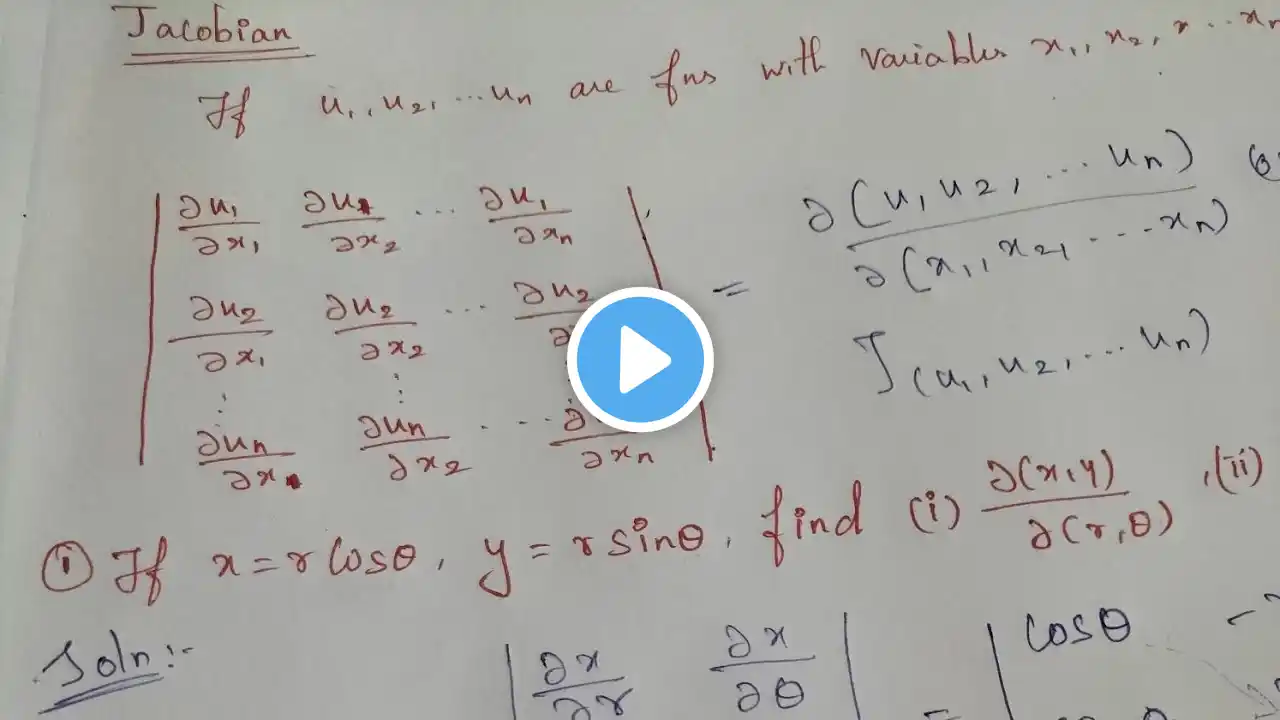 Jacobian
If u₁, u₂, ... uₙ are fns with variables x₁, x₂, x ... xₙ
| ∂u₁/∂x₁ ∂u₁/∂x₂ ... ∂u₁/∂xₙ | = ∂(u₁, u₂, ... uₙ)/∂(x₁, x₂, ... xₙ)
| ∂u₂/∂x₁ ∂u₂/∂x₂ ... ∂u₂/∂ |
⋮ ⋮
| ∂uₙ/∂x ∂uₙ/∂x₂ ... ∂/∂xₙ |
J(u₁, u₂, ... uₙ)
① If x = r cosθ, y = r sinθ, find (i) ∂(x,y)/∂(r,θ), (ii)
Soln:-
| ∂x/∂r ∂x/∂θ | = | cosθ -